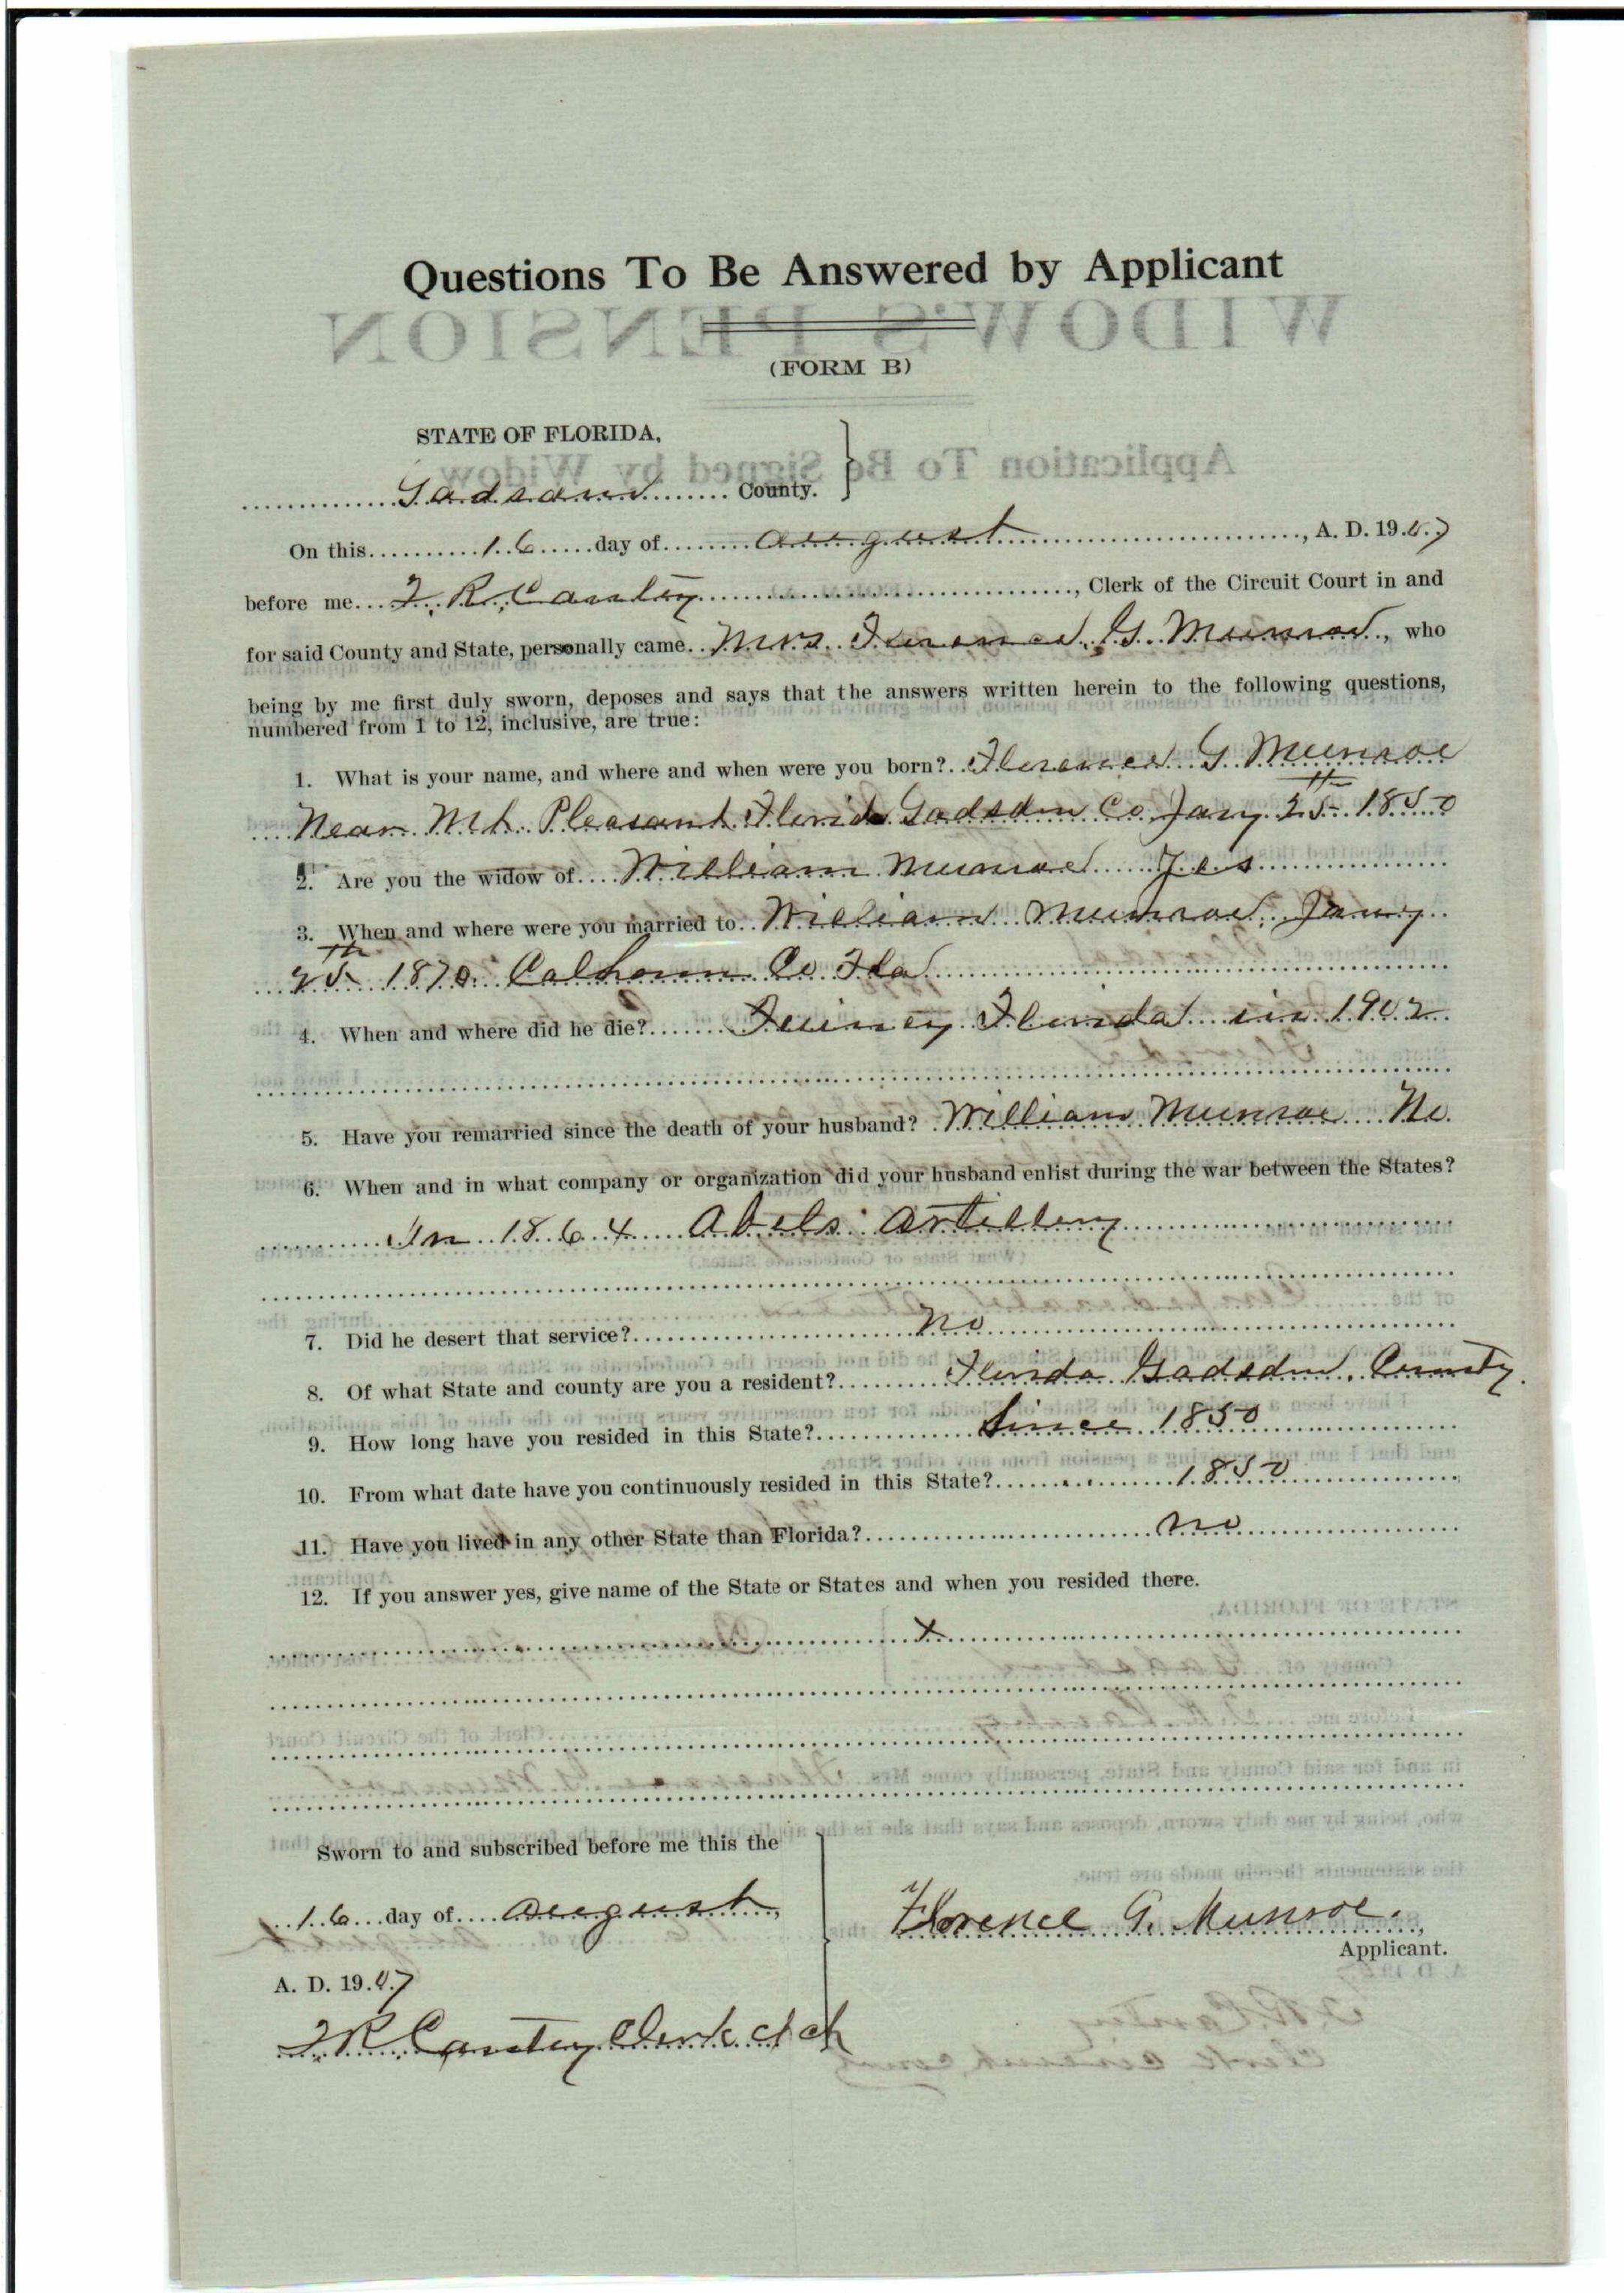 Questions To Be Answered by Applicant
WIDOW'S PENSION
(FORM B)
STATE OF FLORIDA,
Application To Be Signed by Widow
Gadsden County.
On this 16 day of august, A. D. 1907
before me J. R. Cantey, Clerk of the Circuit Court in and
for said County and State, personally came Mrs. Florence G. Munroe, who
being by me first duly sworn, deposes and says that the answers written herein to the following questions,
numbered from 1 to 12, inclusive, are true:
1. What is your name, and where and when were you born? Florence G Munroe
Near Mt. Pleasant Florida Gadsden Co Jany 25th 1850
2. Are you the widow of William Munroe Yes
3. When and where were you married to William Munroe, Jany
25th 1870 Calhoun Co Fla
4. When and where did he die? Quincy Florida in 1902
5. Have you remarried since the death of your husband? William Munroe No.
6. When and in what company or organization did your husband enlist during the war between the States?
In 1864 Abels Artillery
7. Did he desert that service? No
8. Of what State and county are you a resident? Florida Gadsden County.
9. How long have you resided in this State? Since 1850
10. From what date have you continuously resided in this State? 1850
11. Have you lived in any other State than Florida? no
12. If you answer yes, give name of the State or States and when you resided there.
x
Sworn to and subscribed before me this the
16 day of august,
A. D. 1907
J R Cantey Clerk Ct Ct
Florence G. Munroe.,
Applicant.